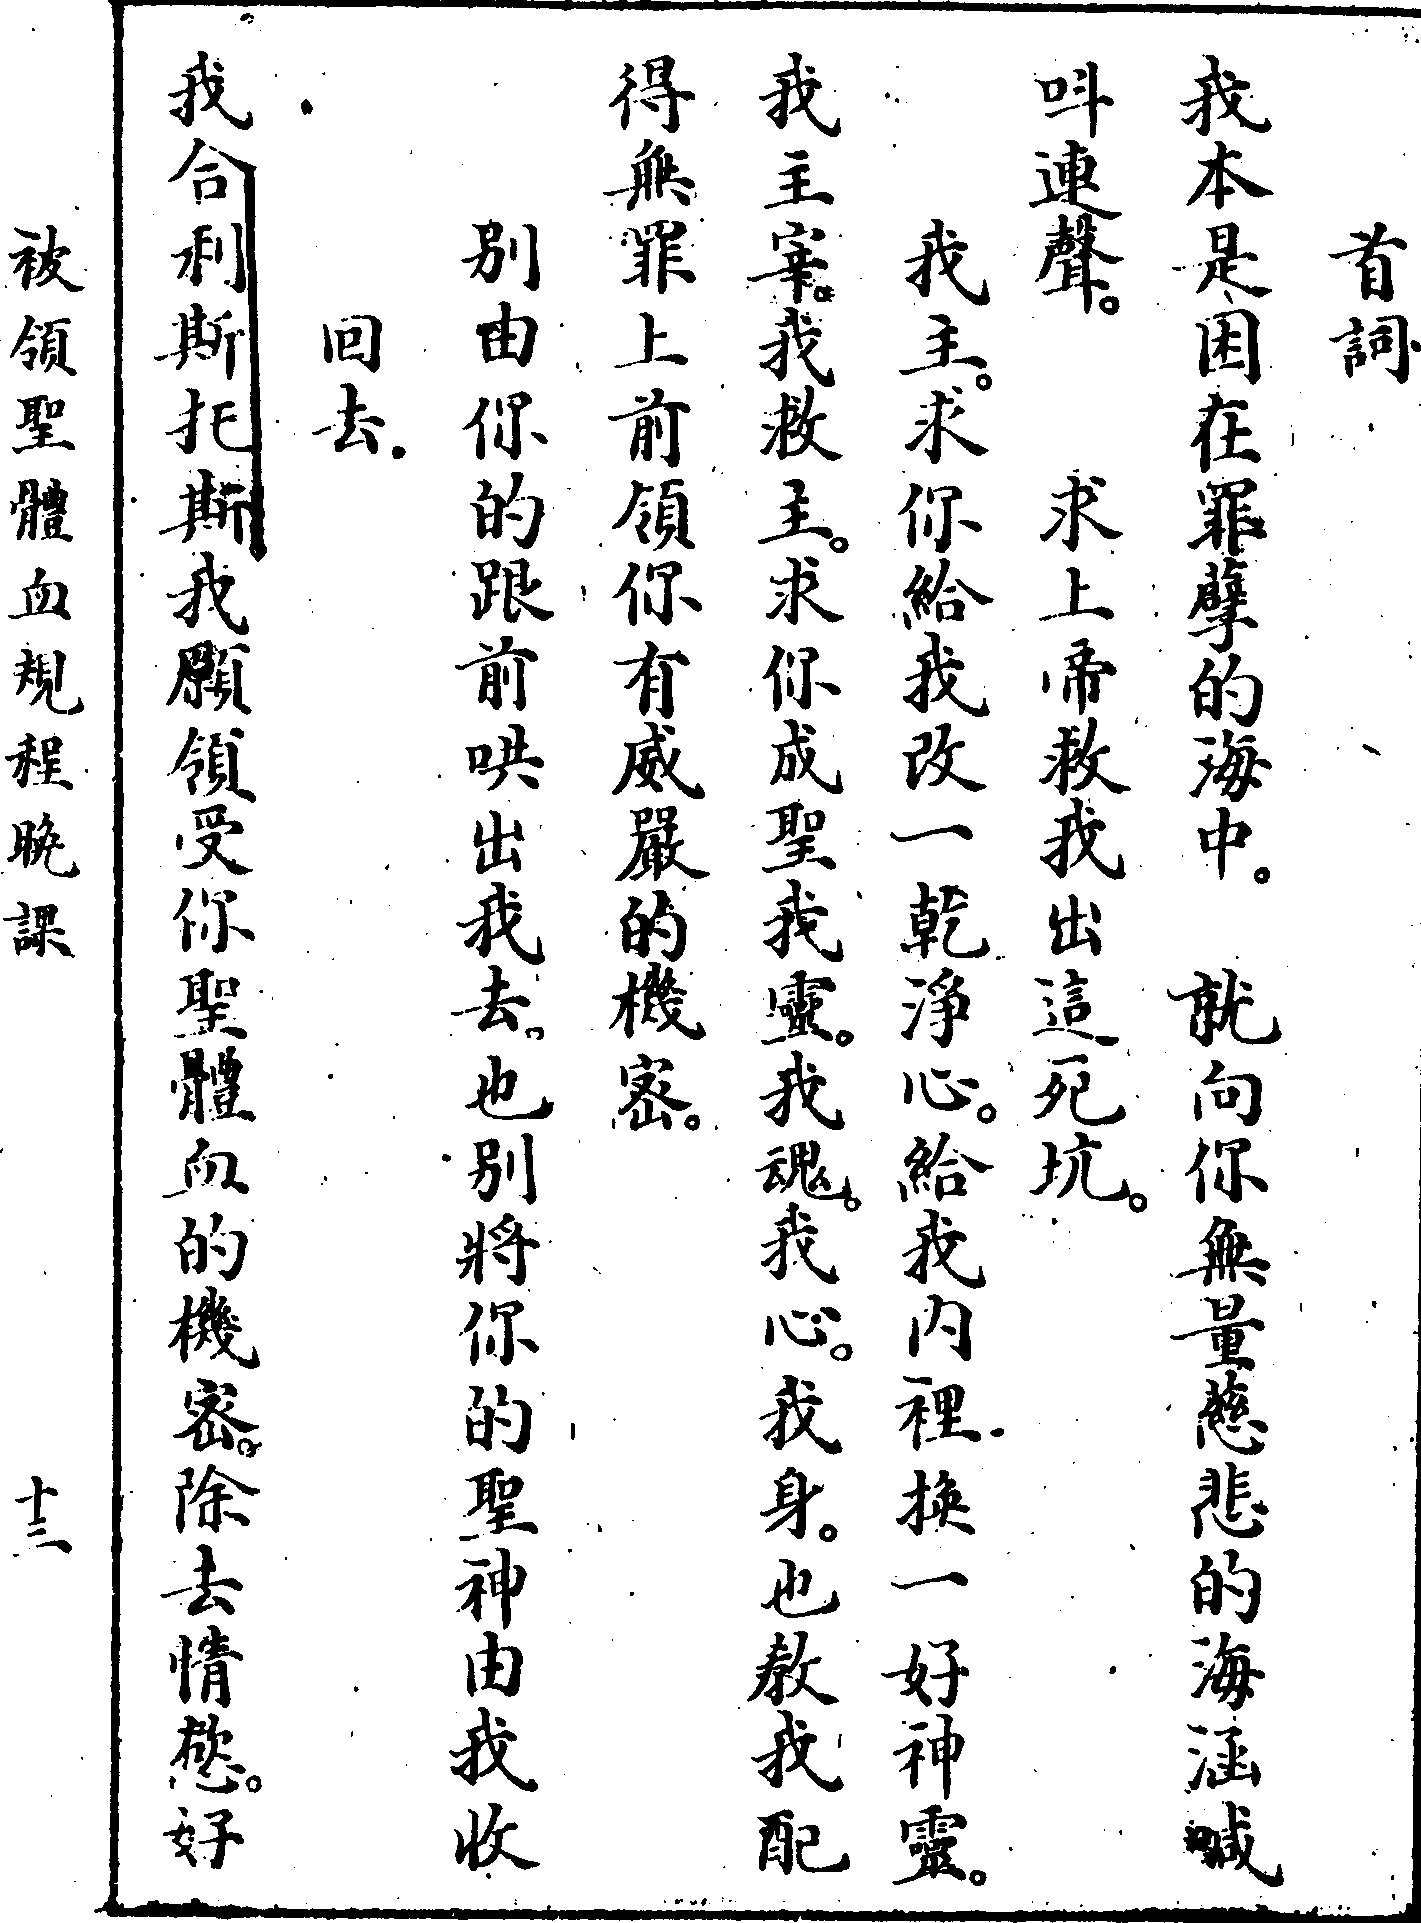 首詞
我本是困在罪孽的海中。　就向你無量慈悲的海涵喊
呌連聲。　求上帝救我出這死坑。
我主。求你給我改一乾淨心。給我内裡．換一好神靈。
我主宰。我救主。求你成聖我靈。我魂。我心。我身。也教我配
得無罪上前領你有威嚴的機密。
别由你的跟前哄出我去。也别將你的聖神由我收
回去．
我合利斯托斯我願領受你聖體血的機密。除去情慾。好
被領聖體血規程晚課　十三